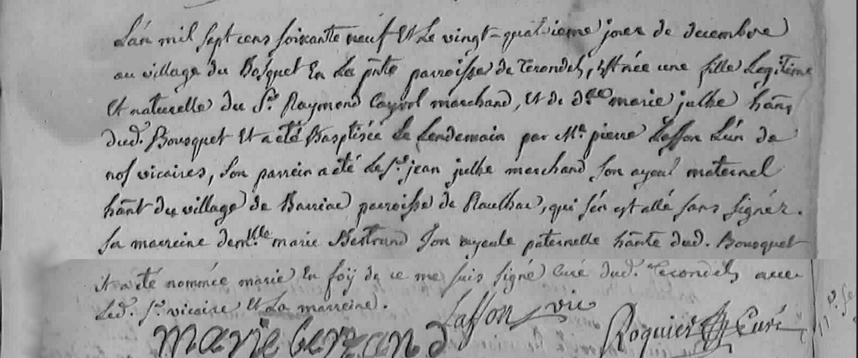 L'an mil sept cens soixante neuf Et Le vingt-quatrieme jour de decembre
au village du Bosquet En La pnte parroisse de Terondels, Est née une fille Legitime
Et naturelle du Sr. Raymond Cayrol marchand, et de dlle marie julhe hans
dud. Bousquet Et a été Baptisée Le Lendemain par Mr. pierre Laffon L'un de
nos vicaires, Son parrein a été Le Sr. jean julhe marchand Son ayeul maternel
hant du village de Barriac parroisse de Raulhac, qui s'en est allé sans signer.
Sa marreine demlle marie Bertrand Son ayeule paternelle hante dud. Bousquet
Et a été nommée marie En foy de ce me suis signé Curé dud. Terondels avec
Led. Sr. vicaire Et La marreine.
marie berrand Laffon vic Roquier Curé